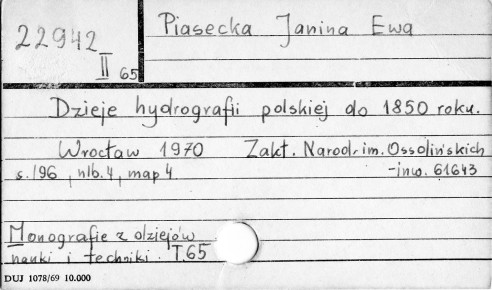 22942
II 65
Piasecka Janina Ewa
Dzieje hydrografii polskiej do 1850 roku.
Wrocław 1970 Zakł. Narod. im. Ossolińskich
s. 196, nlb. 4, map 4 - inw. 61643
Monografie z dziejów
nauki i techniki. T. 65
DUJ 1078/69 10.000